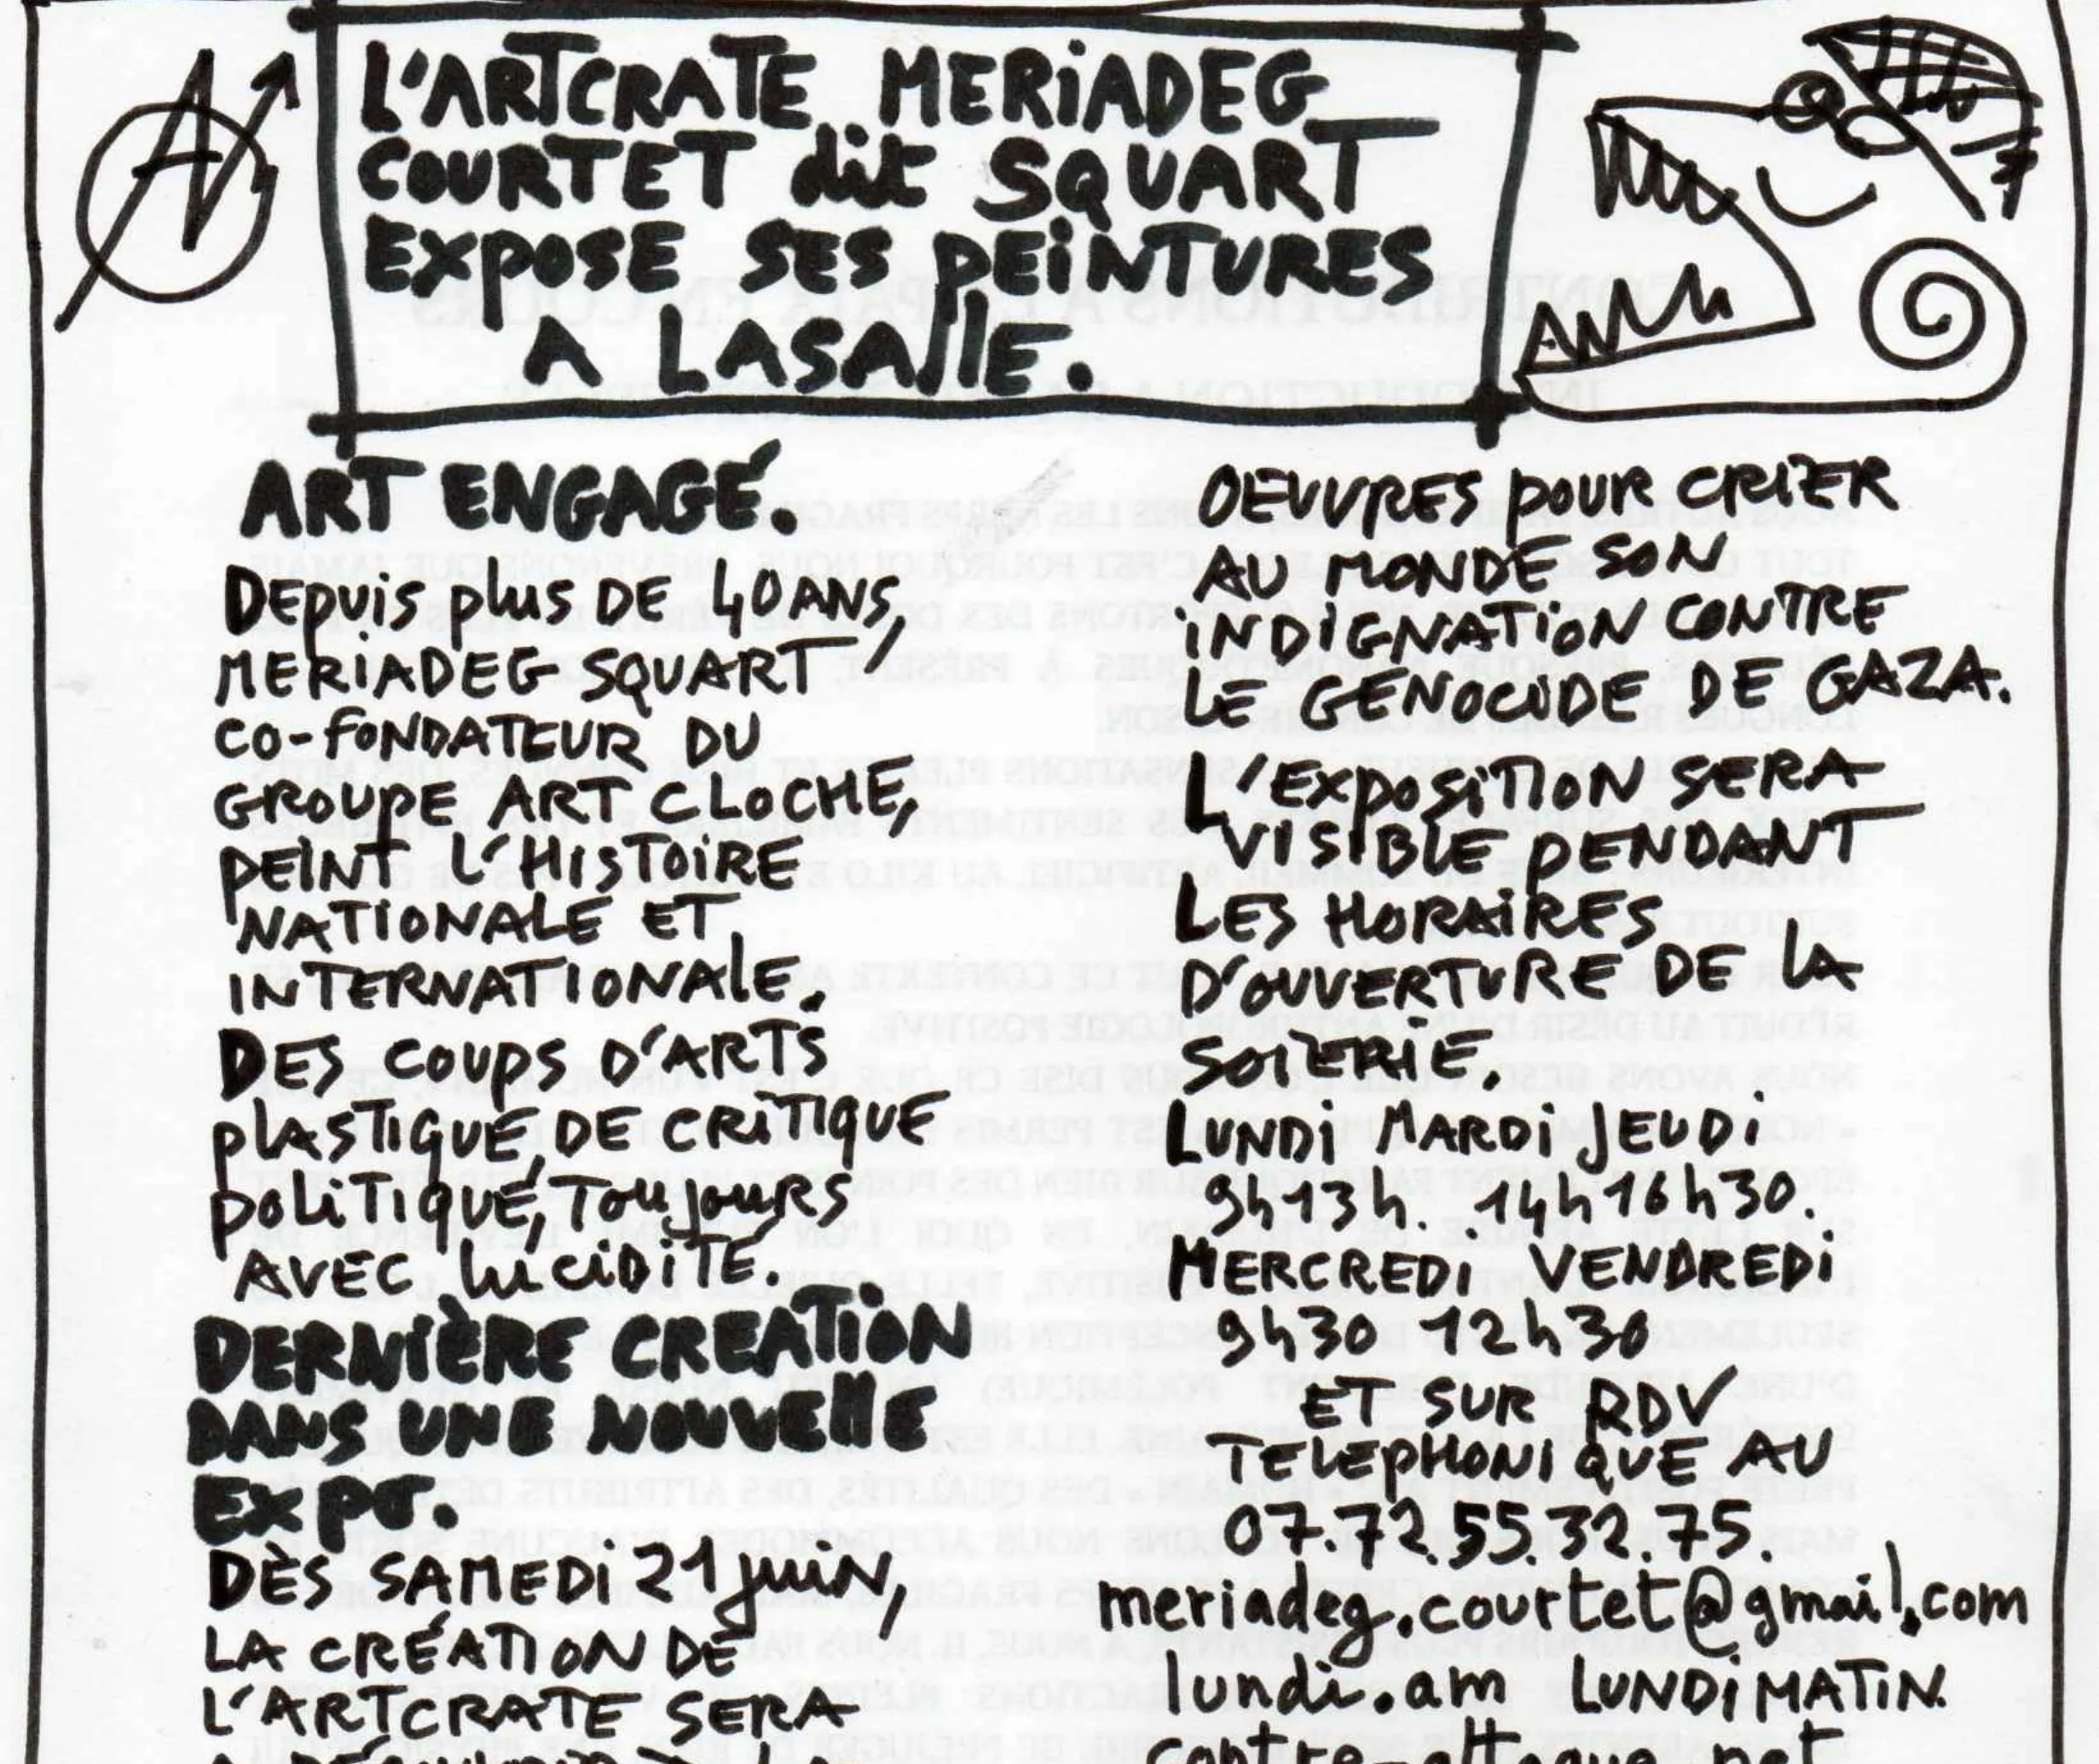 L'ARTCRATE MERIADEG
COURTET dit SQUART
EXPOSE SES PEINTURES
A LASALLE.
ART ENGAGÉ.
DEPUIS PLUS DE 40 ANS,
MERIADEG SQUART
CO-FONDATEUR DU
GROUPE ART CLOCHE,
PEINT L'HISTOIRE
NATIONALE ET
INTERNATIONALE.
DES COUPS D'ARTS
PLASTIQUE, DE CRITIQUE
POLITIQUE, TOUJOURS
AVEC LUCIDITÉ.
DERNIÈRE CREATION
DANS UNE NOUVELLE
EXPO.
DÈS SAMEDI 21 JUIN,
LA CRÉATION DE
L'ARTCRATE SERA
OEUVRES POUR CRIER
AU MONDE SON
INDIGNATION CONTRE
LE GENOCIDE DE GAZA.
L'EXPOSITION SERA
VISIBLE PENDANT
LES HORAIRES
D'OUVERTURE DE LA
SOIERIE.
LUNDI MARDI JEUDI
9h13h. 14h16h30.
MERCREDI VENDREDI
9h30 12h30
ET SUR RDV
TELEPHONIQUE AU
07.72.55.32.75.
meriadeg.courtet@gmail.com
lundi.am LUNDI MATIN
contre-attaque.net